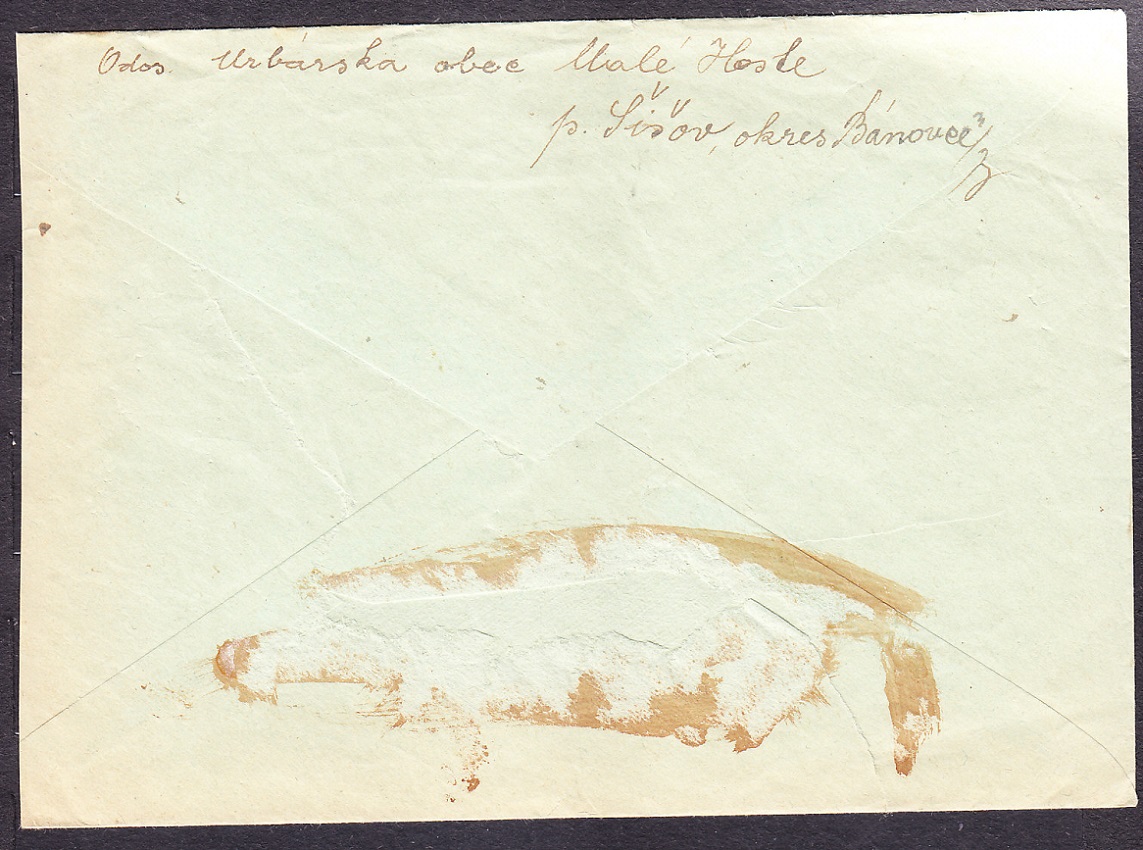 Odos. Urbárska obec Malé Hoste
p. Šišov, okres Bánovce